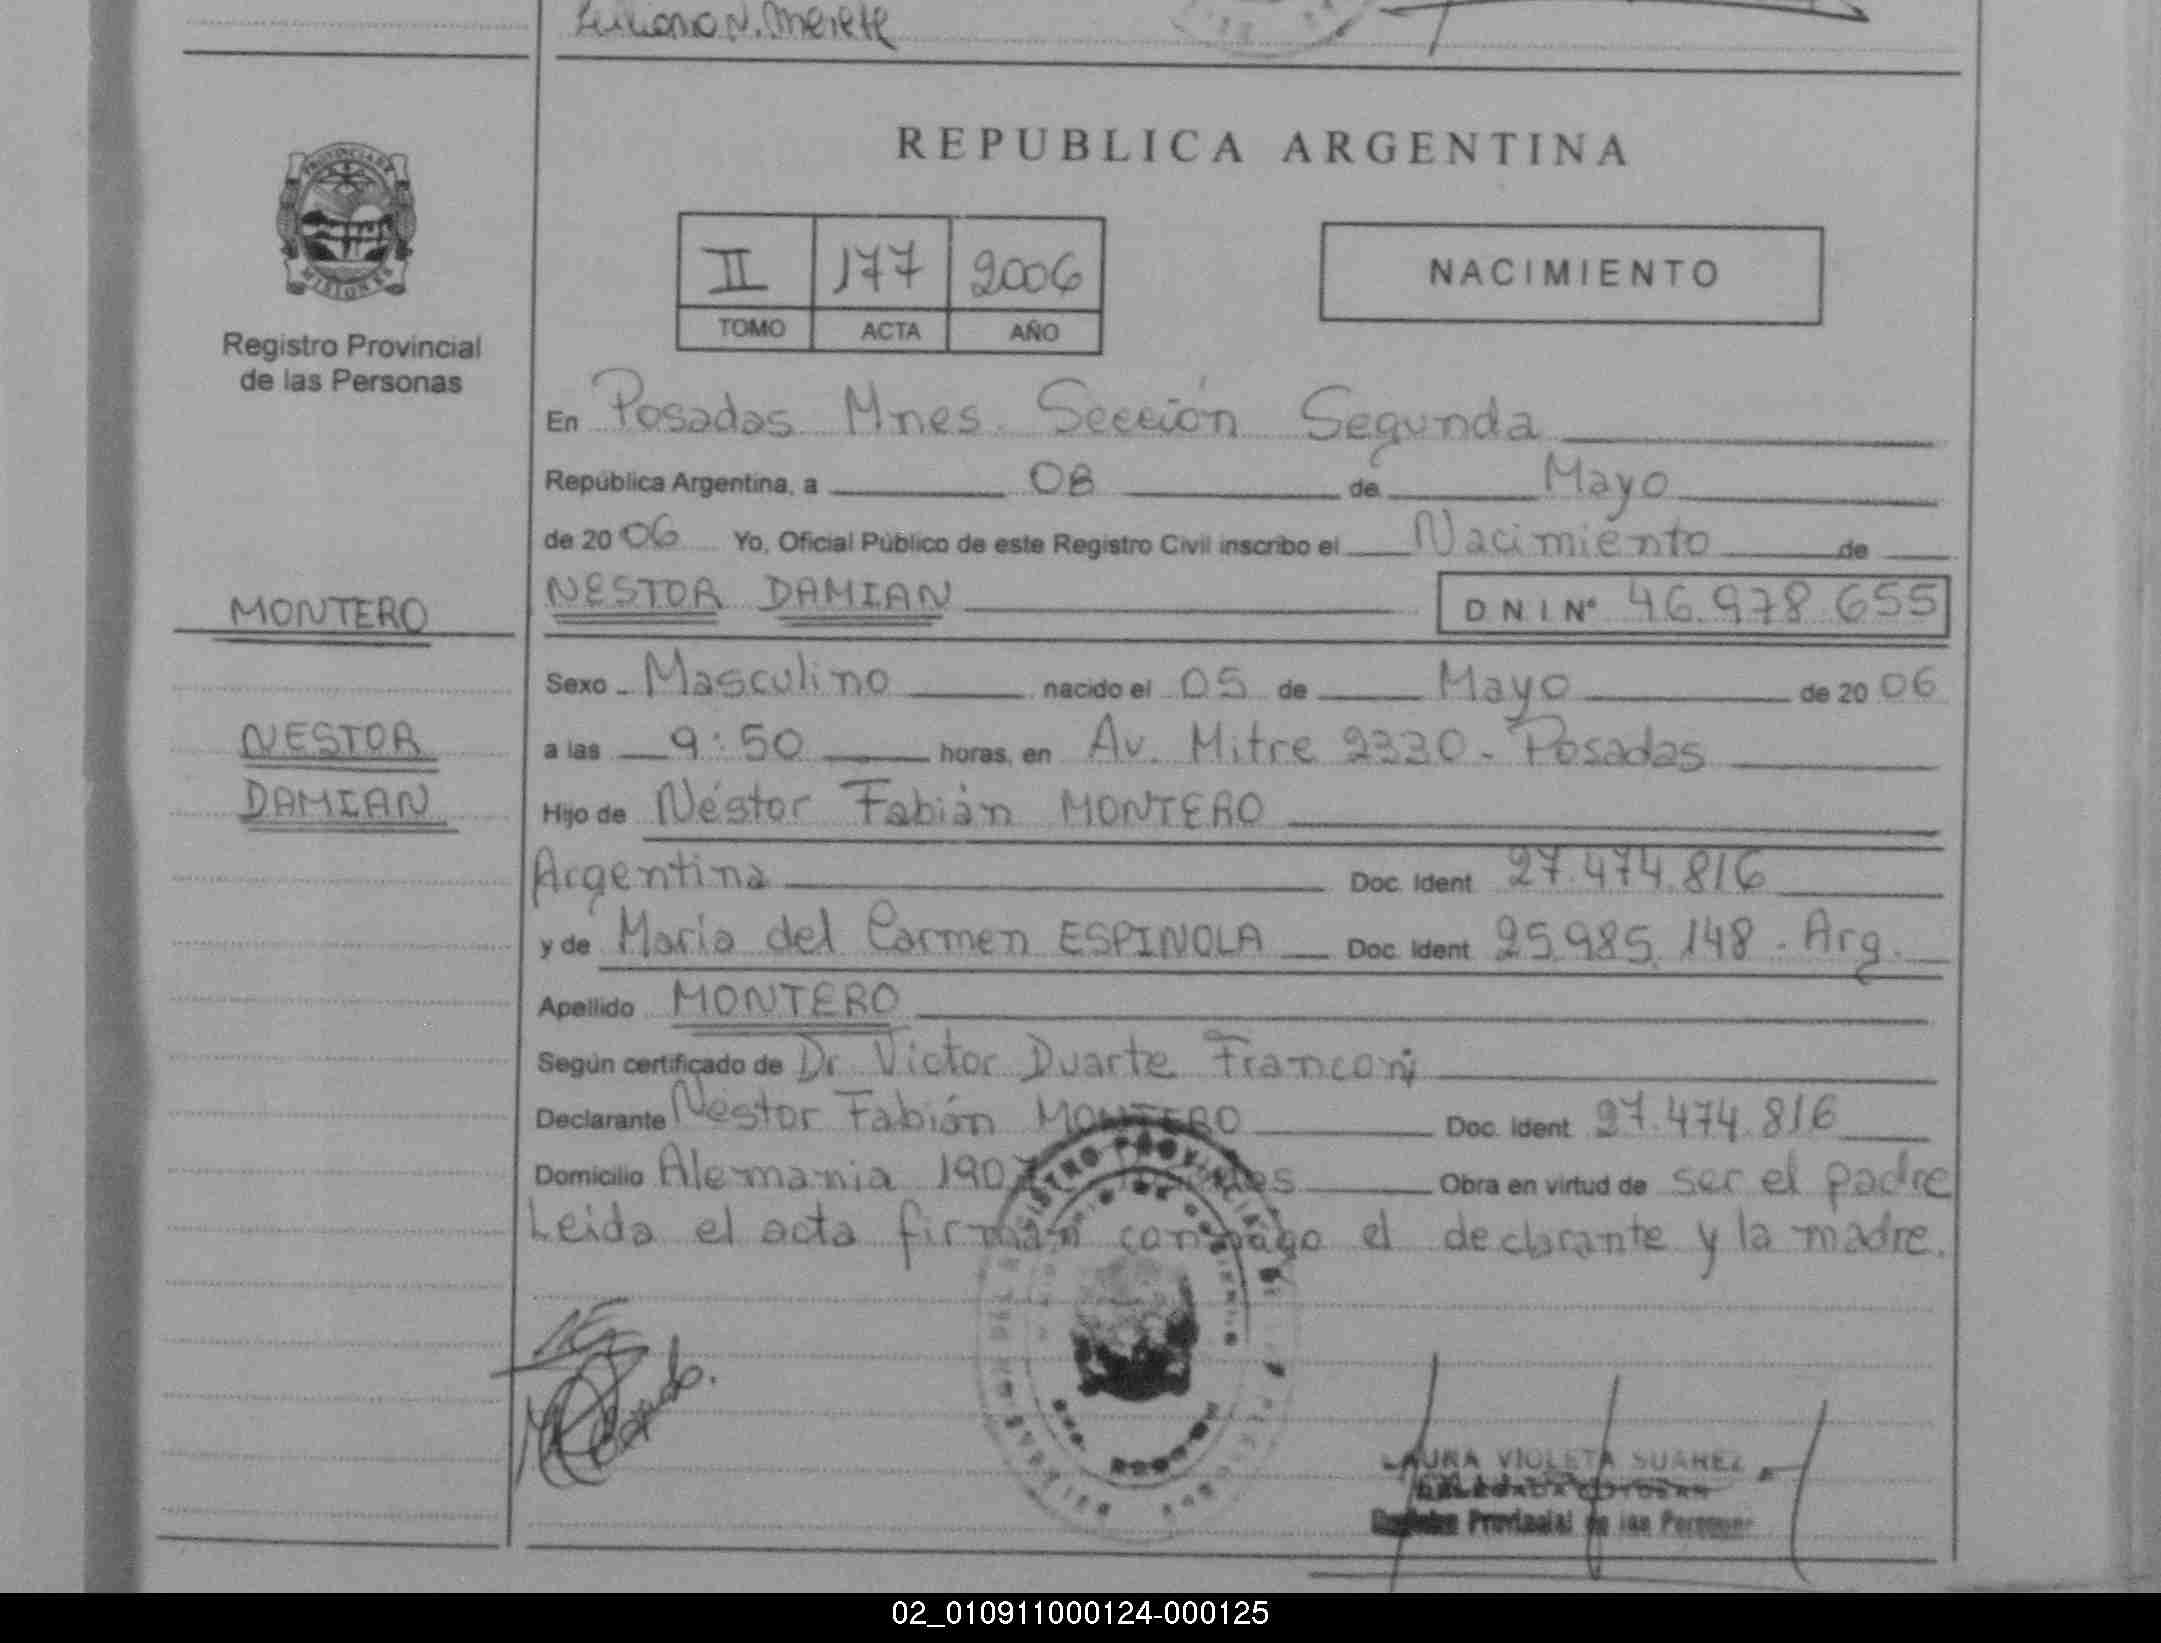 REPUBLICA ARGENTINA
PROVINCIA DE
MISIONES
Registro Provincial
de las Personas
II 177 2006
TOMO ACTA AÑO
NACIMIENTO
En Posadas Mnes. Sección Segunda
República Argentina, a 08 de Mayo
de 2006 Yo, Oficial Público de este Registro Civil inscribo el Nacimiento de
MONTERO
NESTOR DAMIAN DNI Nº 46.978.655
Sexo Masculino nacido el 05 de Mayo de 2006
NESTOR
a las 9:50 horas, en Av. Mitre 2330 - Posadas
DAMIAN
Hijo de Néstor Fabián MONTERO
Argentina Doc. Ident 27.474.816
y de María del Carmen ESPINOLA Doc. Ident 25.985.148 - Arg.
Apellido MONTERO
Según certificado de Dr. Victor Duarte Franconi
Declarante Néstor Fabián MONTERO Doc. Ident 27.474.816
Domicilio Alemania 190 Obra en virtud de ser el padre
Leida el acta firman conmigo el declarante y la madre.
REGISTRO PROVINCIAL DE
LAURA VIOLETA SUAREZ
Provincial de las Personas
02_010911000124-000125